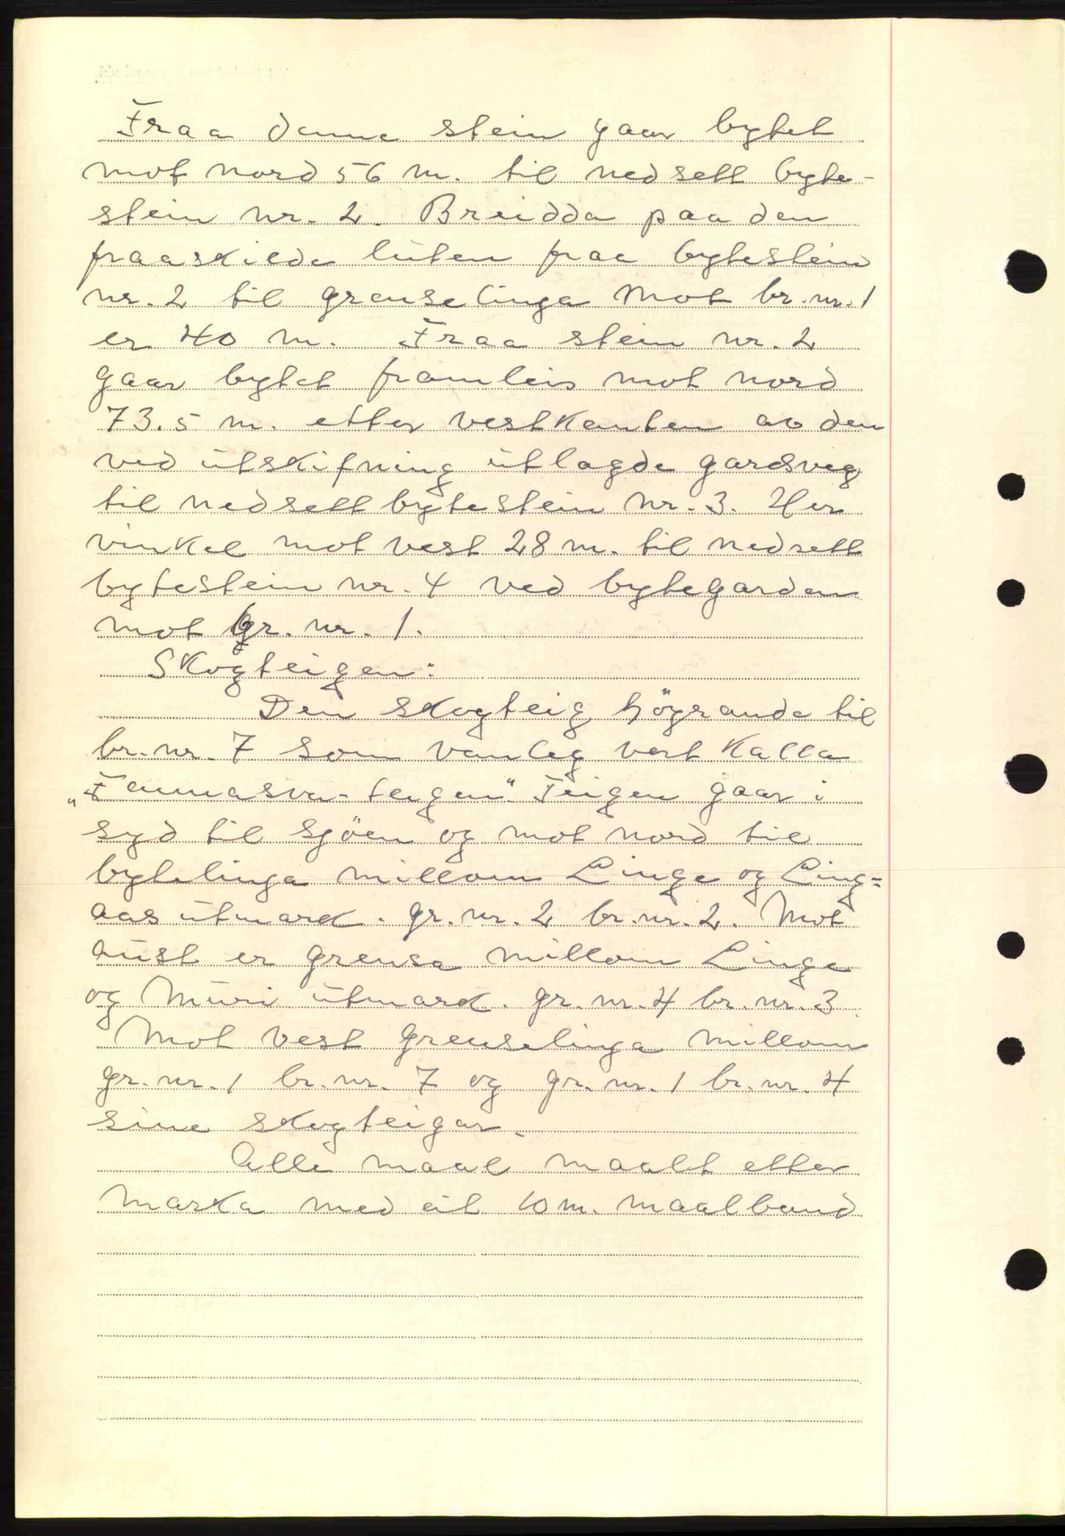 Fraa denne stein gaar bytet
mot nord 56 m. til nedsett byte-
stein nr. 2. Breidda paa den
fraaskilde luten fraa bytestein
nr. 2 til grenselinga mot br. nr. 1
er 40 m. Fraa stein nr. 2
gaar bytet framleis mot nord
73.5 m. etter vestkanten av den
ved utskifning utlagde gardsveg
til nedsett bytestein nr. 3. Her
vinkel mot vest 28 m. til nedsett
bytestein nr. 4 ved bytegarden
mot gr. nr. 1.
Skogteigen:
Den skogteig högrande til
br. nr. 7 som vanleg vert kalla
-teigen". Teigen gaar i
syd til sjöen og mot nord til
bytelinga millom Linge og Ling=
aas utmark. gr. nr. 2 br. nr. 2. Mot
aust er grensa millom Linge
og Muri utmark. gr. nr. 4 br. nr. 3.
Mot vest grenselinga millom
gr. nr. 1 br. nr. 7 og gr. nr. 1 br. nr. 4
sine skogteigar.
Alle maal maalt etter
marka med eit 10 m. maalband